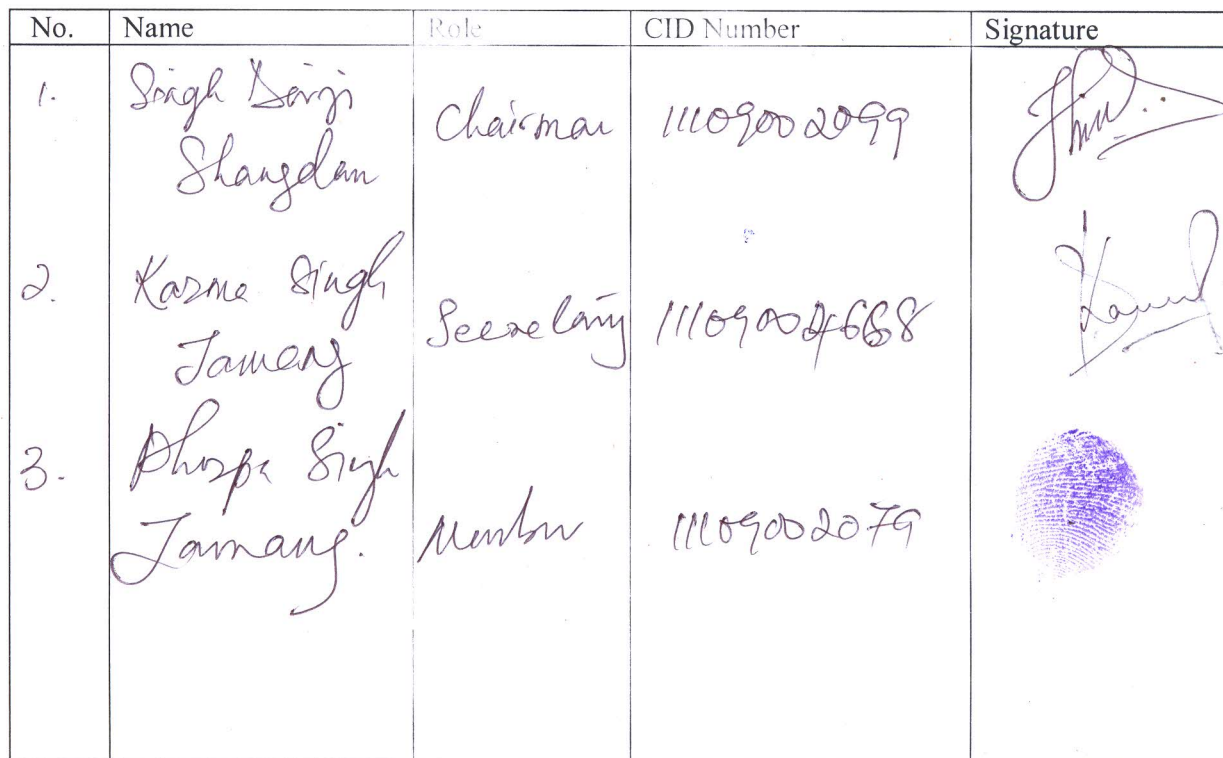 No. Name Role CID Number Signature
1. Singh
Shangdan Chairman 11109002099
2. Karma Singh
Tamang Secretary
3. Singh
Tamang. Member 11109002079